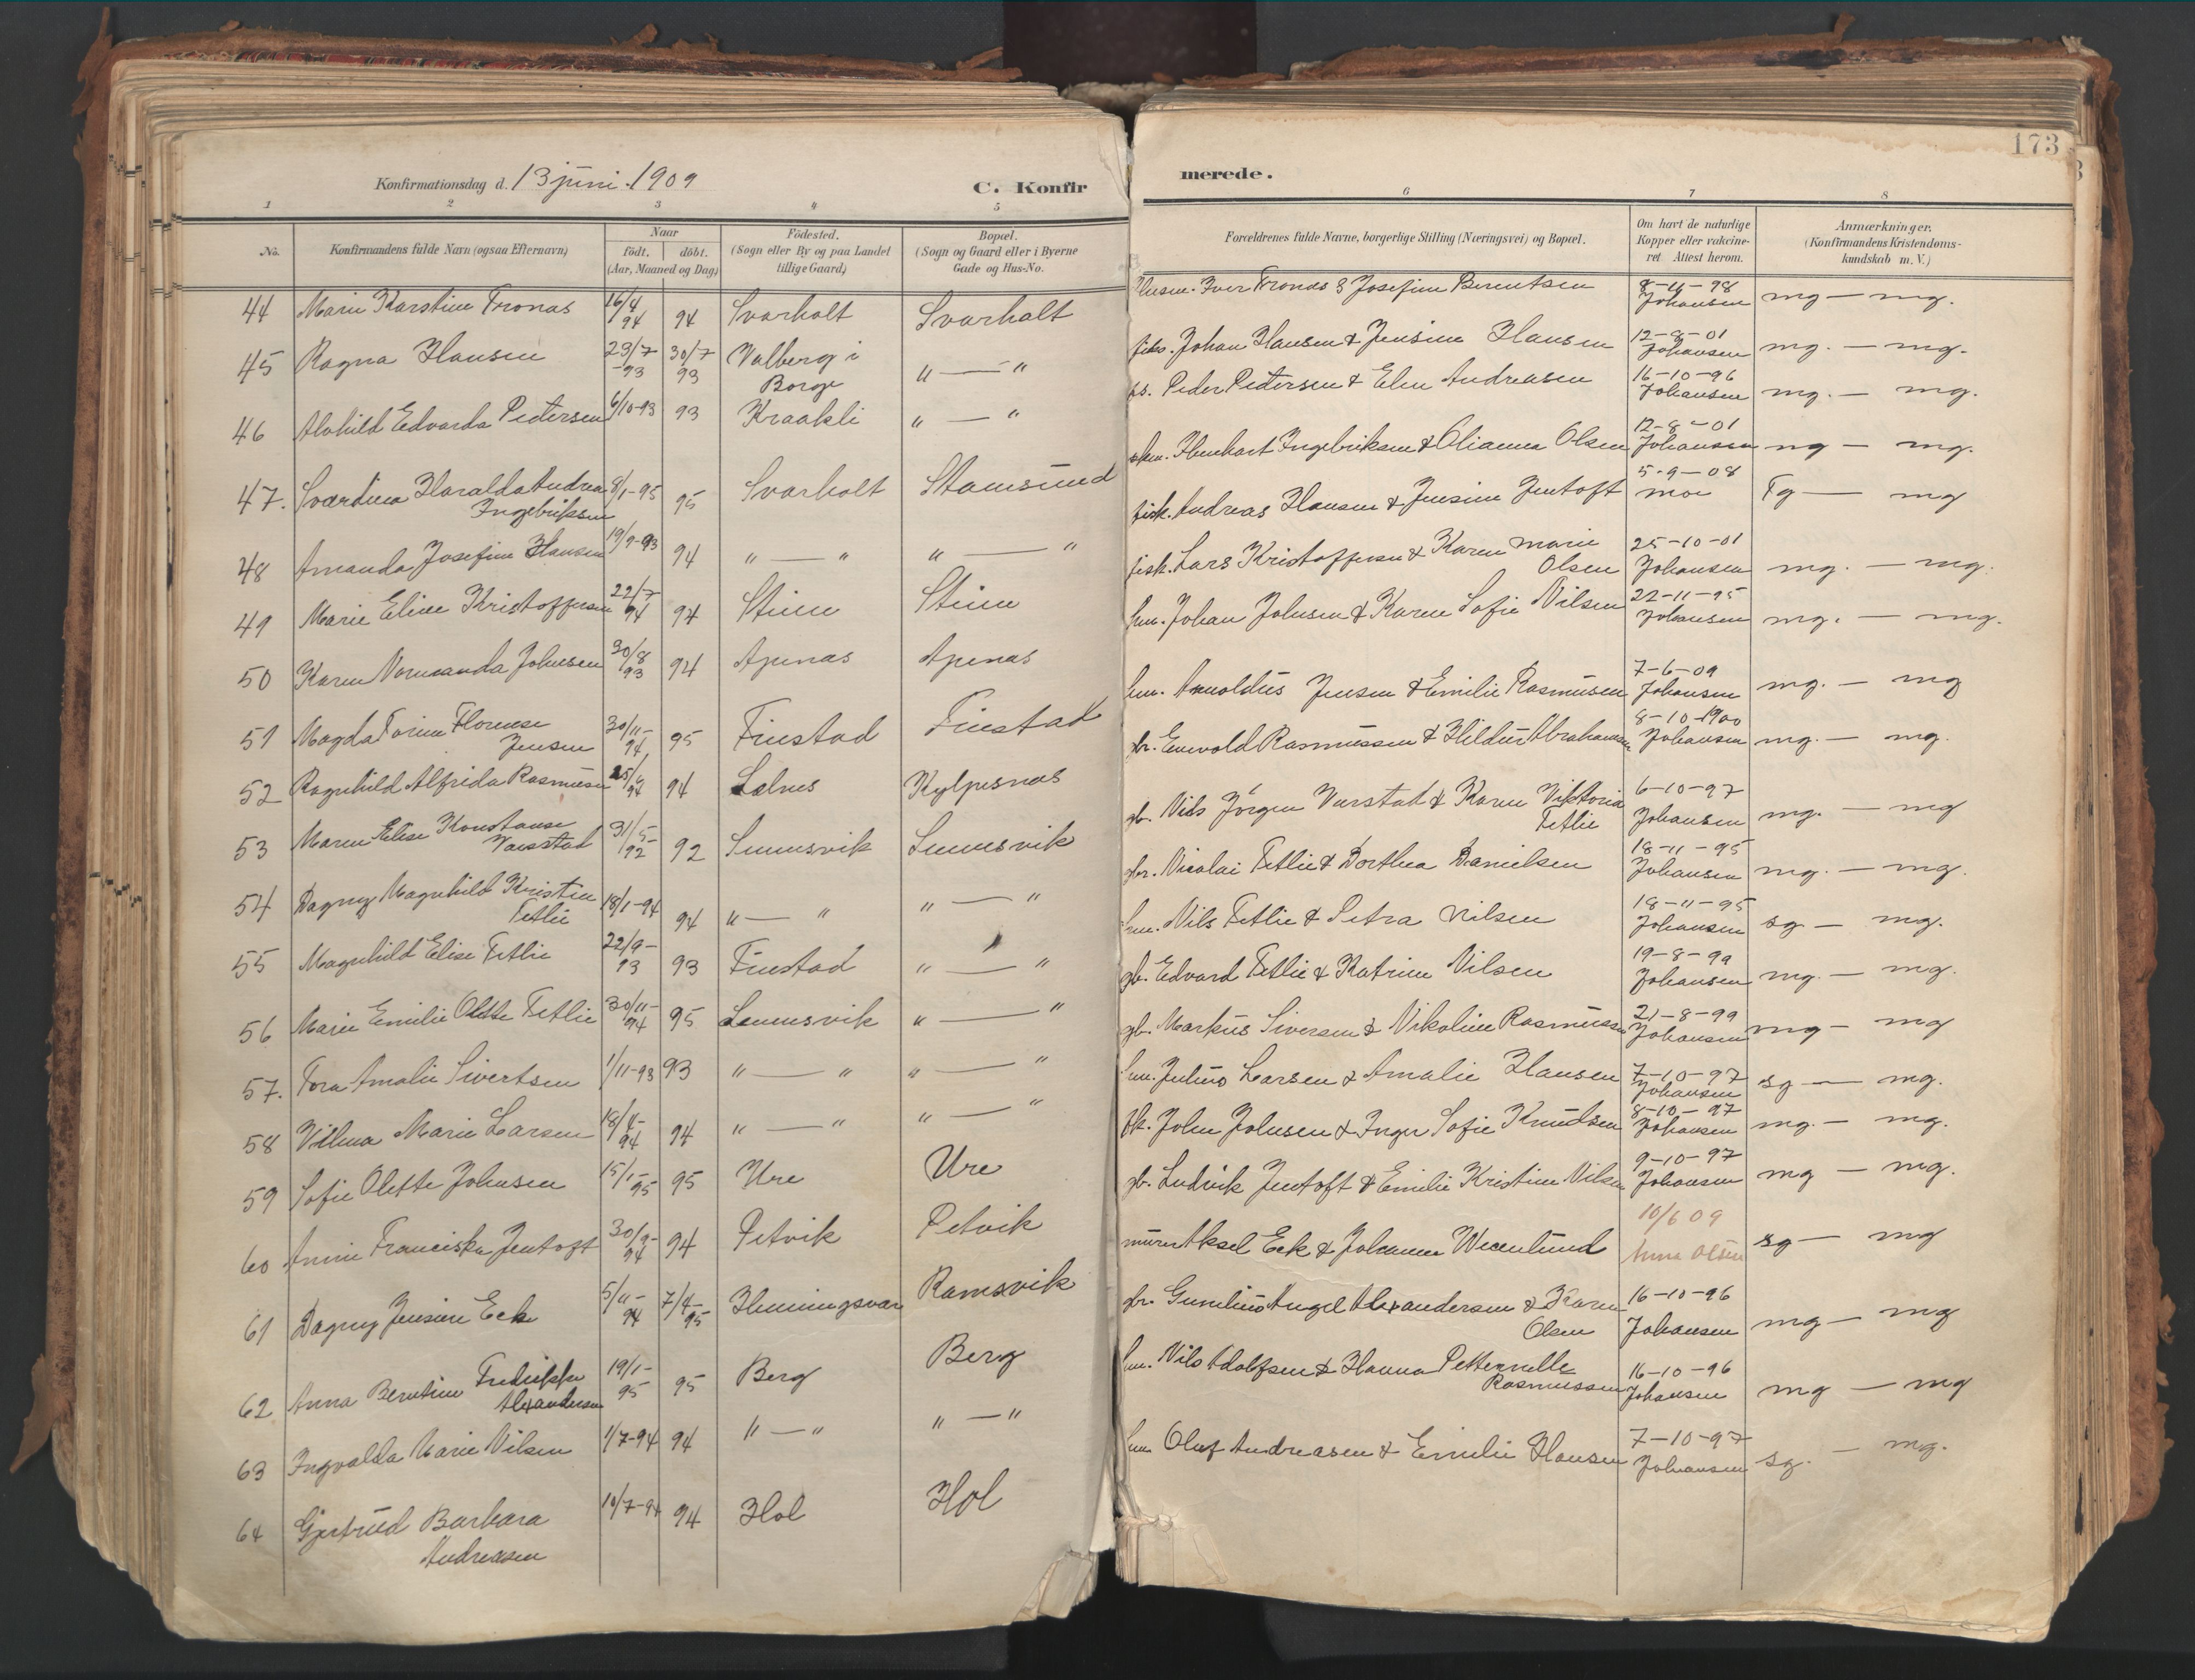 173
Konfirmationsdag d. 13 juni 1909
C. Konfir
merede.
1 2 3 4 5 6 7 8
No.
Konfirmandens fulde Navn (ogsaa Efternavn)
Naar
födt. döbt.
(Aar, Maaned og Dag)
Födested.
(Sogn eller By og paa Landet
tillige Gaard)
Bopæl.
(Sogn og Gaard eller i Byerne
Gade og Hus-No.
Forældrenes fulde Navne, borgerlige Stilling (Næringsvei) og Bopæl.
Om havt de naturlige
Kopper eller vakcine-
ret Attest herom.
Anmærkninger.
(Konfirmandens Kristendoms-
kundskab m. V.)
44 Marie Karstine Tronas 16/4 94 94 Svarholt Svarholt Iver Tronas & Josefine Berentsen 8-11-98 Johansen mg - mg.
45 Ragna Hansen 29/7 -93 30/7 93 Valberg i Borge " — " Johan Hansen & Jensine Hansen 12-8-01 Johansen mg. - mg.
46 Alvhild Edvarda Pedersen 6/10-93 93 Kraakli " — " Peder Pedersen & Elen Andreasen 16-10-96 Johansen mg. — mg.
47. Sverdina Haralda Andrea Ingebriksen 8/1-95 95 Svarholt Stamsund Ingebriksen & Olianna Olsen 12-8-01 Johansen mg — mg.
48 Amanda Josefine Hansen 19/9-93 94 " — " " — " fisk. Andreas Hansen & Jensine Jentoft 5-9-08 moe Tg — mg
49 Marie Eline Kristoffersen 22/7 94 94 Stene Stene fisk. Lars Kristoffersen & Karen Marie Olsen 25-10-01 Johansen mg. — mg.
50 Karen Normanda Johnsen 30/8 93 94 Apenas Apenas hm. Johan Johnsen & Karen Sofie Nilsen 22-11-95 Johansen mg. — mg.
51 Magda Torine Florense Jensen 30/11- 94 95 Finstad Finstad hm. Arnoldus Jensen & Emilie Rasmusen 7-6-09 Johansen mg. — mg
52 Ragnhild Alfrida Rasmusen 94 94 Kylpesnas gbr. Enevold Rasmussen & Hildur Abrahamsen 8-10-1900 Johansen mg. — mg.
53 Maren Elise Konstanse Vaerstad 31/5- 92 92 Sennesvik Sennesvik gb. Nils Jörgen Verstat & Karen Viktoria Tetlie 6-10-97 Johansen mg. — mg
54 Dagny Magnhild Kristine Tetlie 18/1-94 94 " — " " — " gbr. Nicolai Tetlie & Dorthea Danielsen 18-11-95 Johansen mg. — mg.
55 Magnhild Elise Tetlie 22/9- 93 93 Finstad " — " hm. Nils Tetlie & Petra Nilsen 18-11-95 Johansen sg — mg.
56 Marie Emilie Olette Tetlie 30/11- 94 95 Sennesvik " — " gb. Edvard Tetlie & Katrine Nilsen 19-8-99 Johansen mg. — mg.
57. Tora Amalie Sivertsen 1/11-93 93 " — " " — " gb. Markus Siversen & Nikoline Rasmussen 21-8-99 Johansen mg — mg
58 Vilma Marie Larsen 18/4- 94 94 " — " " — " hm. Julius Larsen & Amalie Hansen 7-10-97 Johansen sg — mg.
59 Sofie Olette Johnsen 15/1- 95 95 Ure Ure fk. John Johnsen & Inger Sofie Knudsen 8-10-97 Johansen mg. — mg.
60 Anine Franciska Jentoft 30/9- 94 94 Petvik Petvik gb. Ludvik Jentoft & Emilie Kristine Nilsen 9-10-97 Johansen mg — mg.
61 Dagny Jensine Eck 5/11- 94 7/4- 95 Henningsvær Ramsvik murer Aksel Eck & Johanna Wecenlund 10/6 09 Anna Olsen sg — mg
62 Anna Berntine Fredrikke Alexandersen 19/1- 95 95 Berg Berg gbr. Angel Alexandersen & Karen Olsen 16-10-96 Johansen mg — mg
63 Ingvalda Marie Nilsen 1/7-94 94 " — " " — " hm. Nils Adolfsen & Hanna Petternelle Rasmussen 16-10-96 Johansen mg — mg
64 Gjertrud Barbara Andreasen 10/7-94 94 Hol Hol hm. Oluf Andreasen & Emilie Hansen 7-10-97 Johansen sg. — mg.